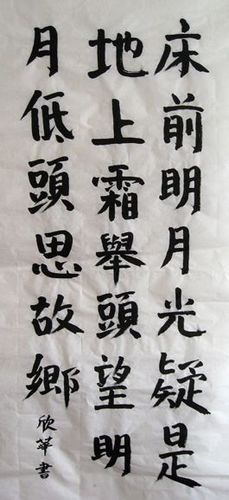 床前明月光疑是
地上霜舉頭望明
月低頭思故鄉
欣華書